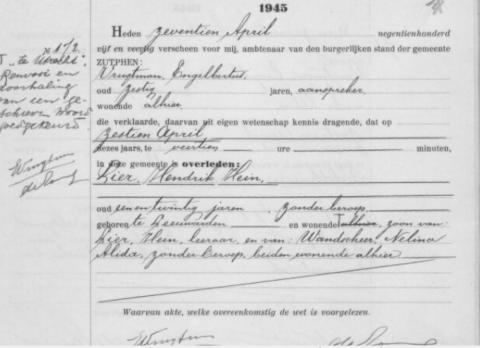 1945
Heden zeventien April negentienhonderd
vijf en veertig verscheen voor mij, ambtenaar van den burgerlijken stand der gemeente
ZUTPHEN:
Vrugtman, Engelbertus,
oud zestig jaren, aanspreker,
wonende alhier
die verklaarde, daarvan uit eigen wetenschap kennis dragende, dat op
zestien April
dezes jaars, te veertien ure minuten,
in deze gemeente is overleden:
Lier, Hendrik Hein,
oud een en twintig jaren, zonder beroep
geboren te Leeuwarden en wonende alhier, zoon van:
Lier, Hein, leeraar, en van: Wandscheer, Nelina
Alida, zonder beroep, beiden wonende alhier
Waarvan akte, welke overeenkomstig de wet is voorgelezen.
No 172
"te Utrecht"
Renvooi en
doorhaling
van een ge-
schreven woord
goedgekeurd